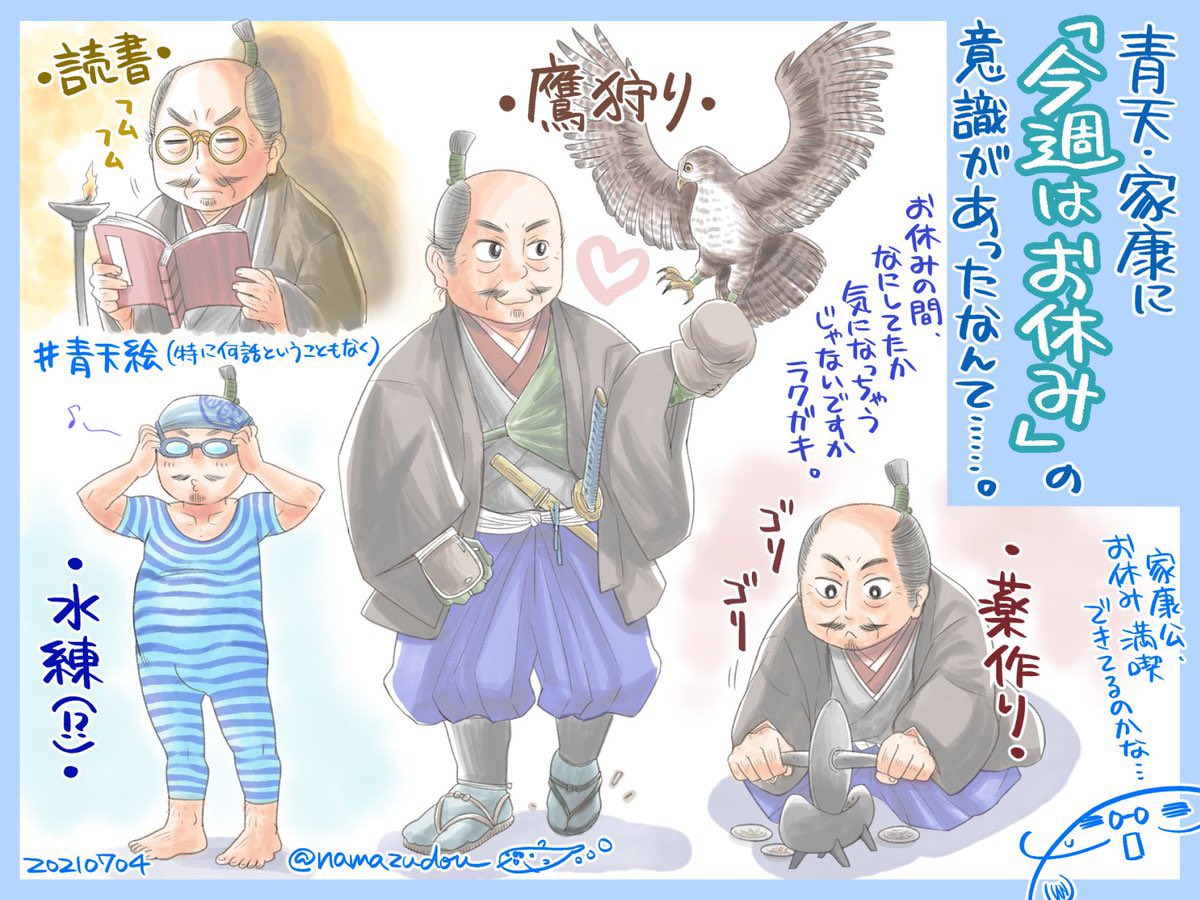 青天・家康に
「今週はお休み」の
意識があったなんて……。
・読書・
フムフム
#青天絵(特に何話ということもなく)
・鷹狩り・
お休みの間、
なにしてたか
気になっちゃう
じゃないですか
ラクガキ。
・水練(!?)・
ゴリ
ゴリ
・薬作り・
家康公、
お休み満喫
できてるのかな…
20210704
@namazudou